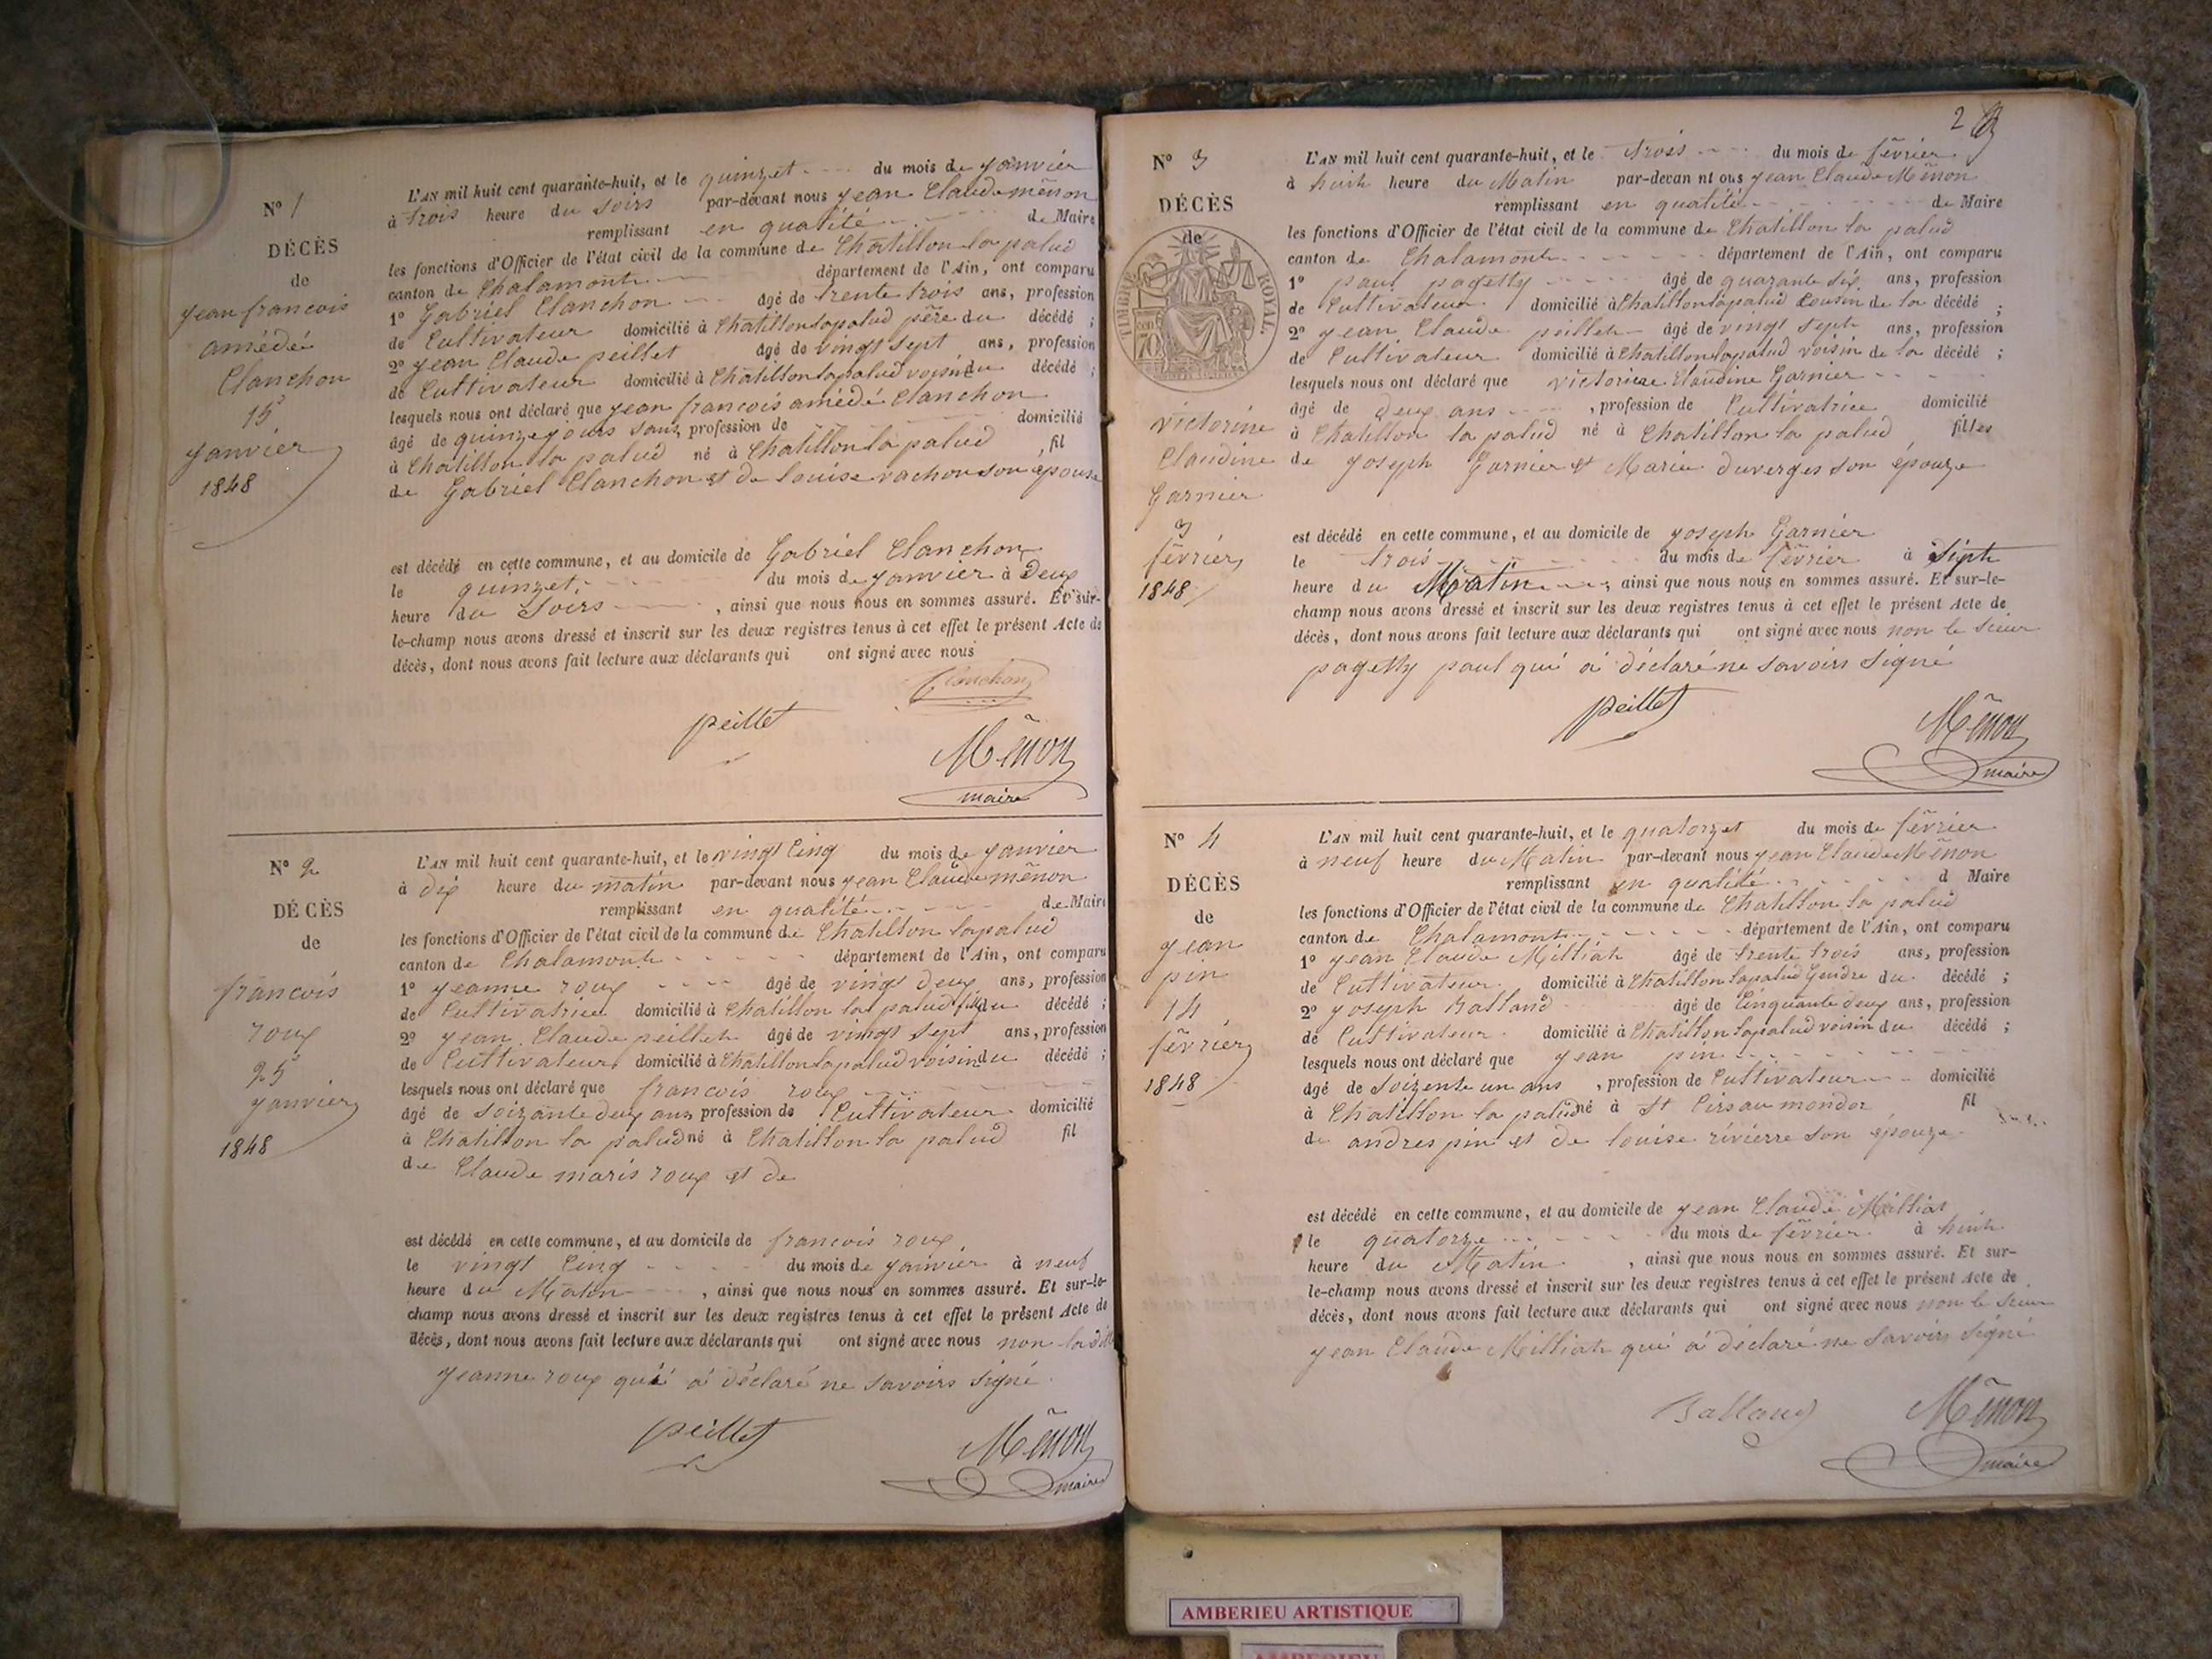 N° 1
DÉCÈS
de
jean francois
amédé
Clanchon
15
janvier
1848
L'AN mil huit cent quarante-huit, et le quinzet du mois de janvier
à trois heure du soirs par-devant nous jean Claude mẽnon
remplissant en qualité de Maire
les fonctions d'Officier de l'état civil de la commune de Chatillon la palud
canton de Chalamont département de l'Ain, ont comparu
1° Gabriel Clanchon âgé de trente trois ans, profession
de Cultivateur domicilié à Chatillon lapalud père du décédé ;
2° jean Claude peillet âgé de vingt sept ans, profession
de Cultivateur domicilié à Chatillon lapalud voisin du décédé ;
lesquels nous ont déclaré que jean francois amédé Clanchon
âgé de quinze jours sans profession de domicilié
à Chatillon la palud né à Chatillon la palud , fil
de Gabriel Clanchon et de louise vachon son épouse
est décédé en cette commune, et au domicile de Gabriel Clanchon
le quinzet du mois de janvier à Deux
heure du soirs , ainsi que nous nous en sommes assuré. Et sur-
le-champ nous avons dressé et inscrit sur les deux registres tenus à cet effet le présent Acte de
décès, dont nous avons fait lecture aux déclarants qui ont signé avec nous
Clanchon
peillet
Mẽnon
maire
N° 2
DÉCÈS
de
francois
roux
25
janvier
1848
L'AN mil huit cent quarante-huit, et le vingt Cinq du mois de janvier
à dix heure du matin par-devant nous jean Claude mẽnon
remplissant en qualité de Maire
les fonctions d'Officier de l'état civil de la commune de Chatillon lapalud
canton de Chalamont département de l'Ain, ont comparu
1° jeanne roux âgé de vingt deux ans, profession
de Cultivatrice domicilié à Chatillon la palud du décédé ;
2° jean Claude peillet âgé de vingt sept ans, profession
de Cultivateur domicilié à Chatillon lapalud voisin du décédé ;
lesquels nous ont déclaré que francois roux
âgé de soizante deux ans profession de Cultivateur domicilié
à Chatillon la palud né à Chatillon la palud fil
de Claude maris roux et de
est décédé en cette commune, et au domicile de francois roux
le vingt Cinq du mois de janvier à neuf
heure du Matin , ainsi que nous nous en sommes assuré. Et sur-le-
champ nous avons dressé et inscrit sur les deux registres tenus à cet effet le présent Acte de
décès, dont nous avons fait lecture aux déclarants qui ont signé avec nous non la
jeanne roux qui á déclaré ne savoirs signé
peillet
Mẽnon
maire
2
N° 3
DÉCÈS
de
TIMBRE ROYAL
70
Victorine
Claudine
Garnier
3
fẽvrier
1848
L'AN mil huit cent quarante-huit, et le trois du mois de fẽvrier
à huit heure du Matin par-devan nt ous jean Claude Mẽnon
remplissant en qualité de Maire
les fonctions d'Officier de l'état civil de la commune de Chatillon la palud
canton de Chalamont département de l'Ain, ont comparu
1° paul pagetty âgé de quarante six ans, profession
de Cultivateur domicilié à Chatillon lapalud Cousin de la décédé ;
2° jean Claude peillet âgé de vingt sept ans, profession
de Cultivateur domicilié à Chatillon lapalud voisin de la décédé ;
lesquels nous ont déclaré que victorine Claudine Garnier
âgé de deux ans , profession de Cultivatrice domicilié
à Chatillon la palud né à Chatillon la palud , filles
de joseph Garnier et Marie duverges son épouze
est décédé en cette commune, et au domicile de joseph Garnier
le trois du mois de fẽvrier à Sept
heure du Matin , ainsi que nous nous en sommes assuré. Et sur-le-
champ nous avons dressé et inscrit sur les deux registres tenus à cet effet le présent Acte de
décès, dont nous avons fait lecture aux déclarants qui ont signé avec nous non le sieur
pagetty paul qui á déclaré ne savoirs signé
peillet
Mẽnon
maire
N° 4
DÉCÈS
de
jean
pin
14
fẽvrier
1848
L'AN mil huit cent quarante-huit, et le quatorzet du mois de fẽvrier
à neuf heure du Matin par-devant nous jean Claude Mẽnon
remplissant en qualité d Maire
les fonctions d'Officier de l'état civil de la commune de Chatillon la palud
canton de Chalamont département de l'Ain, ont comparu
1° jean Claude Milliat âgé de trente trois ans, profession
de Cultivateur domicilié à Chatillon lapalud Gendre du décédé ;
2° joseph Balland âgé de Cinquante deux ans, profession
de Cultivateur domicilié à Chatillon lapalud voisin du décédé ;
lesquels nous ont déclaré que jean pin
âgé de soizente un ans , profession de Cultivateur domicilié
à Chatillon la palud né à St Cirs au mondor , fil
de andres pin et de louise rivierre son épouze
est décédé en cette commune, et au domicile de jean Claude Milliat
le quatorze du mois de fẽvrier à huit
heure du Matin , ainsi que nous nous en sommes assuré. Et sur-
le-champ nous avons dressé et inscrit sur les deux registres tenus à cet effet le présent Acte de
décès, dont nous avons fait lecture aux déclarants qui ont signé avec nous non le sieur
jean Claude Milliat qui á déclaré ne savoirs signé
Balland
Mẽnon
maire
AMBERIEU ARTISTIQUE
AMBERIEU